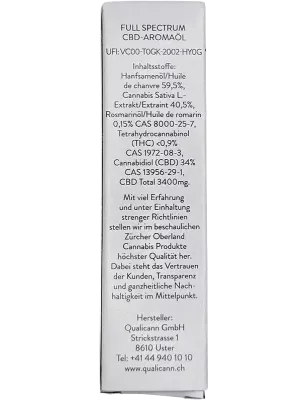 FULL SPECTRUM
CBD-AROMAÖL
UFI: VC00-T0GK-2002-HY0G
Inhaltsstoffe:
Hanfsamenöl/Huile
de chanvre 59,5%,
Cannabis Sativa L.-
Extrakt/Extraint 40,5%,
Rosmarinöl/Huile de romarin
0,15% CAS 8000-25-7,
Tetrahydrocannabinol
(THC) <0,9%
CAS 1972-08-3,
Cannabidiol (CBD) 34%
CAS 13956-29-1,
CBD Total 3400mg.
Mit viel Erfahrung
und unter Einhaltung
strenger Richtlinien
stellen wir im beschaulichen
Zürcher Oberland
Cannabis Produkte
höchster Qualität her.
Dabei steht das Vertrauen
der Kunden, Transparenz
und ganzheitliche Nach-
haltigkeit im Mittelpunkt.
Hersteller:
Qualicann GmbH
Strickstrasse 1
8610 Uster
Tel: +41 44 940 10 10
www.qualicann.ch